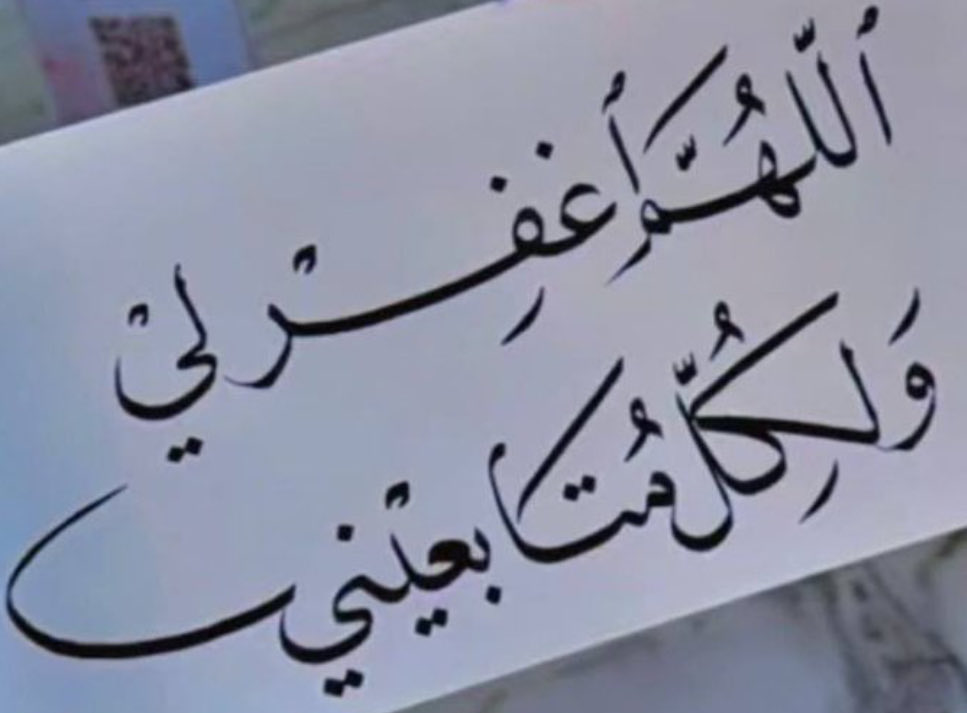 اَللّٰهُمَّ أغفِرْ لِيْ
وَلِكُلِّ مُتَابعيْني